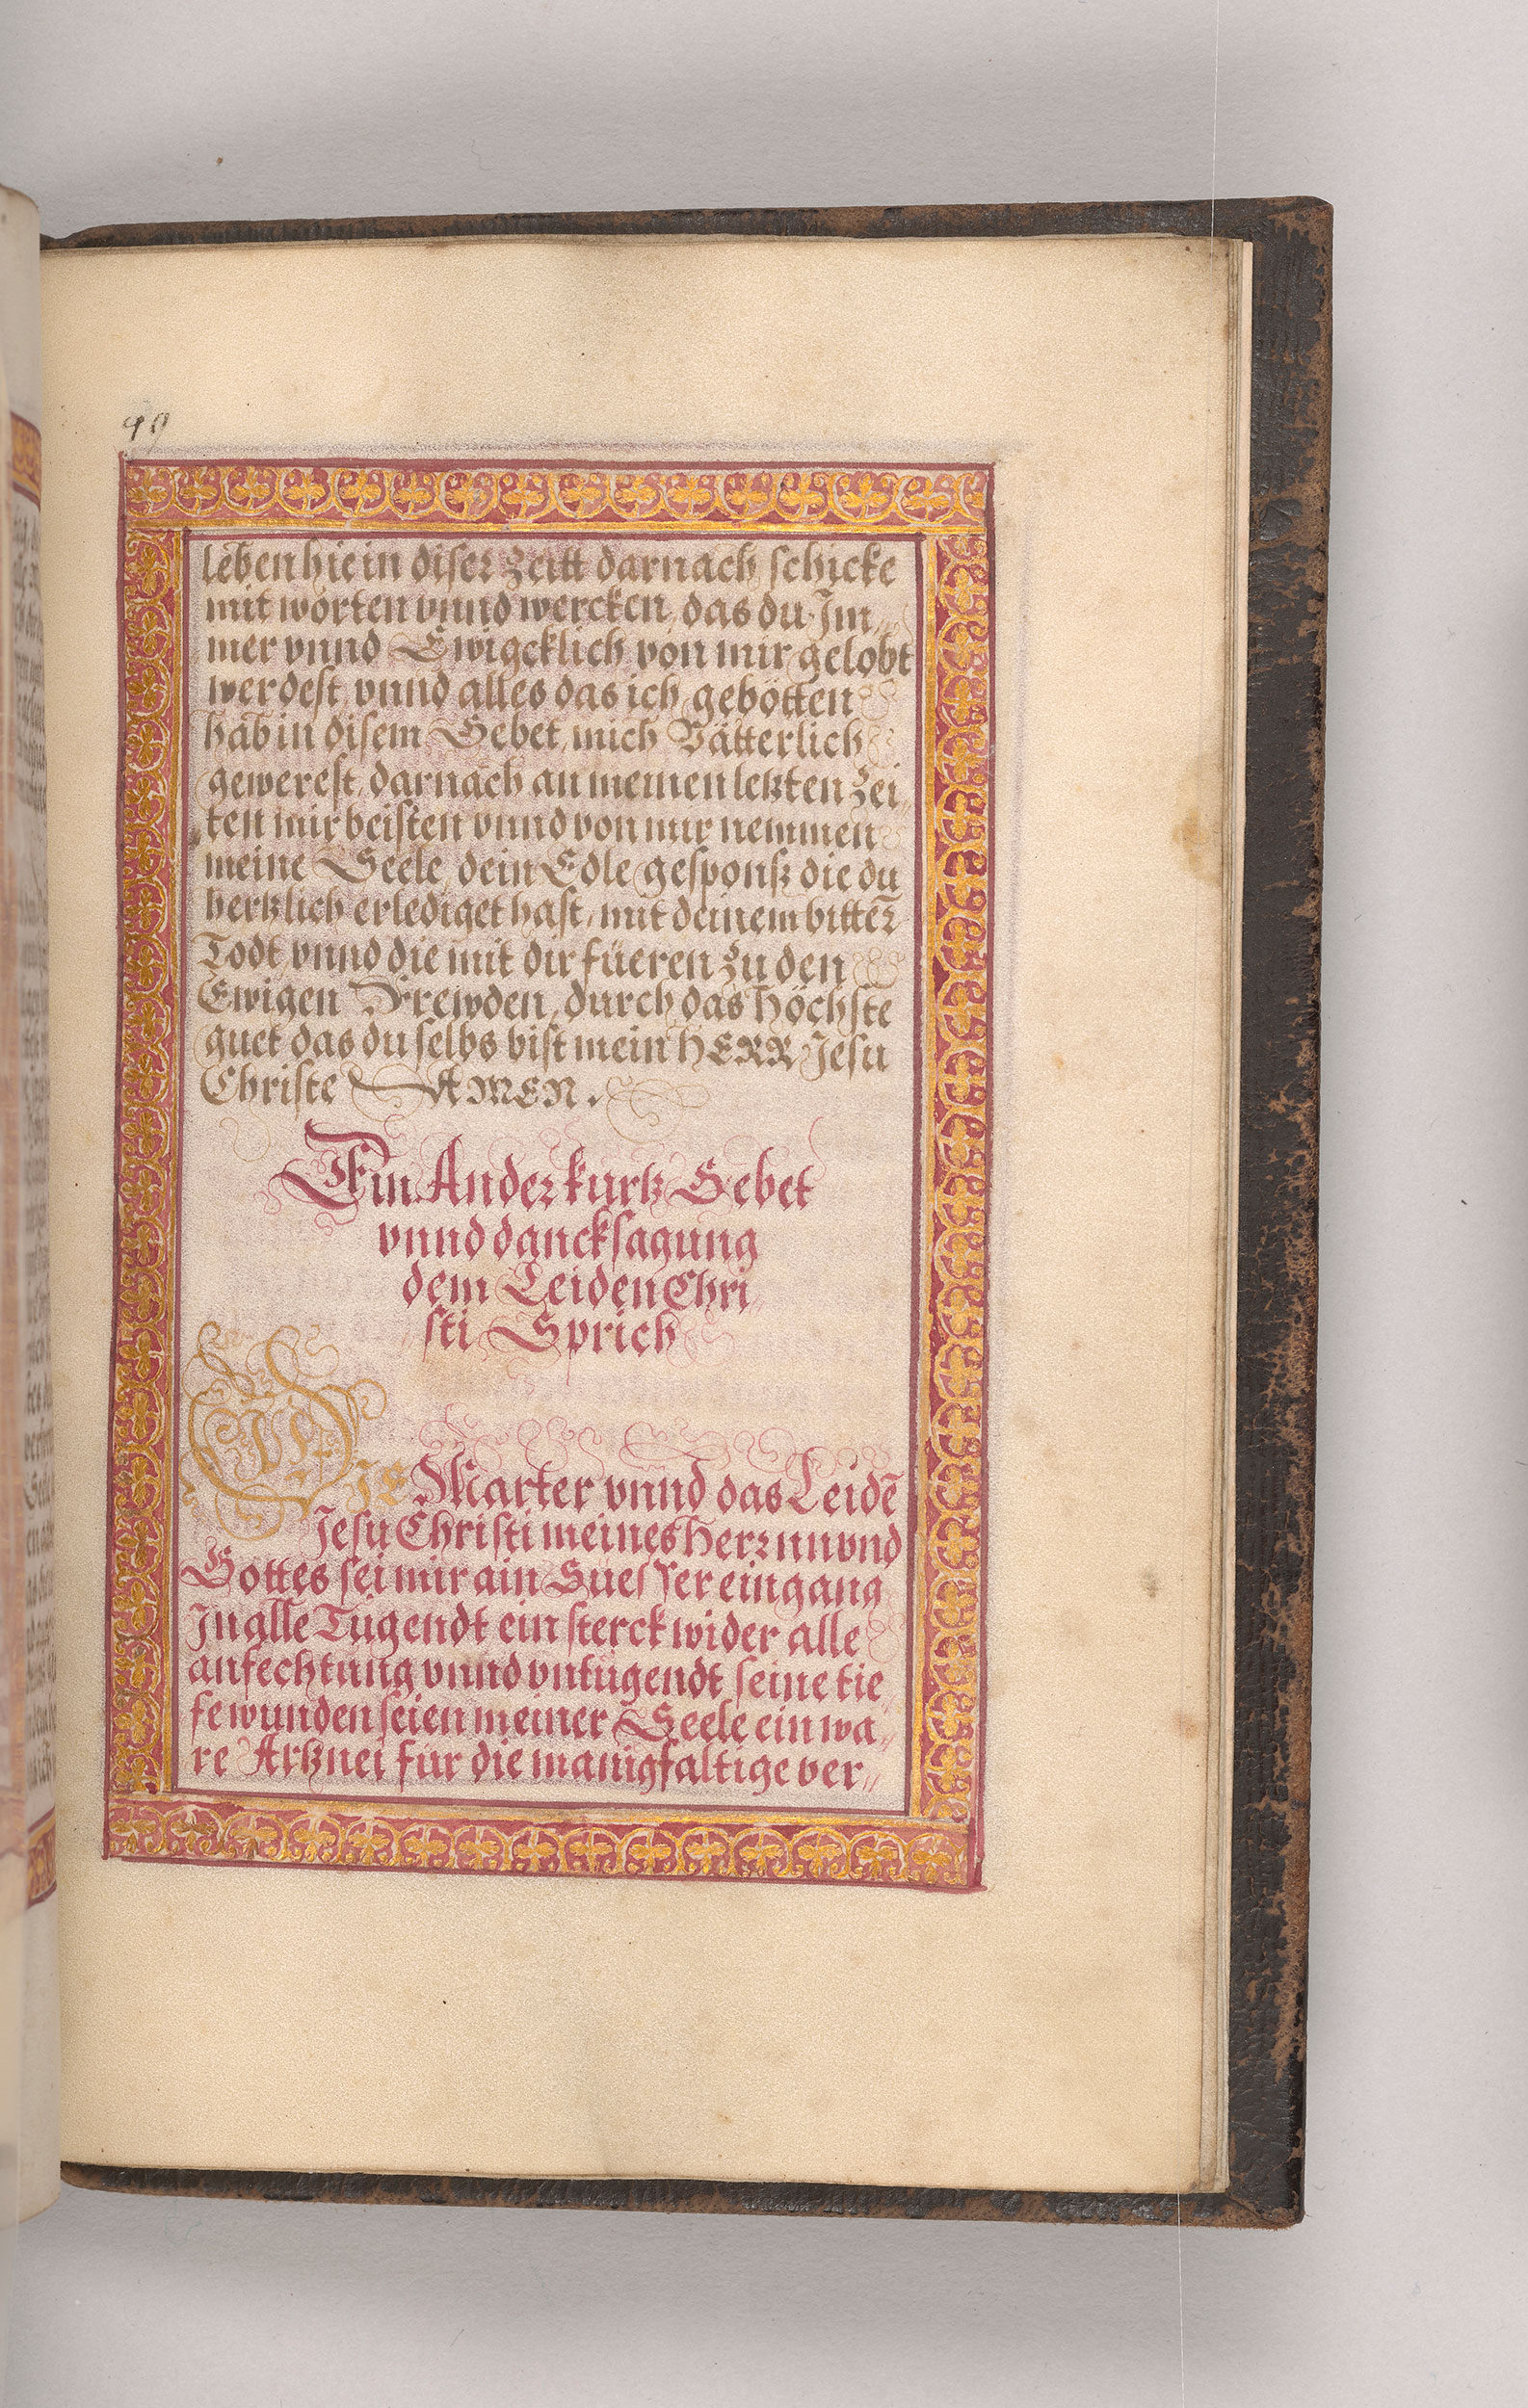 99
leben hie in diser Zeitt darnach schicke
mit worten vnnd wercken, das du Im„
mer vnnd Ewigcklich von mir gelobt
werdest, vnnd alles das ich gebötten
hab in disem Gebet, mich Vätterlich
gewerest, darnach an meinen letzten Zei„
ten mir beisten vnnd von mir nemmen
meine Seele, dein Edle gesponß die du
hertzlich erlediget hast, mit deinem bitter̄
Todt vnnd die mit dir füeren Zu den
Ewigen Frewden, durch das Höchste
guet das du selbs bist mein HERR Jesu
Christe AMEN.
Ein Ander kurtz Gebet
vnnd dancksagung
dem Leiden Chri„
sti, Sprich
DIE Marter vnnd das Leidē
Jesu Christi meines Herrnn vnd
Gottes sei mir ain Suesser eingang
In alle Tugendt ein sterck wider alle
anfechtung vnnd vntugendt seine tie„
fe wunden seien meiner Seele ein wa„
re Artznei für die manigfaltige ver„